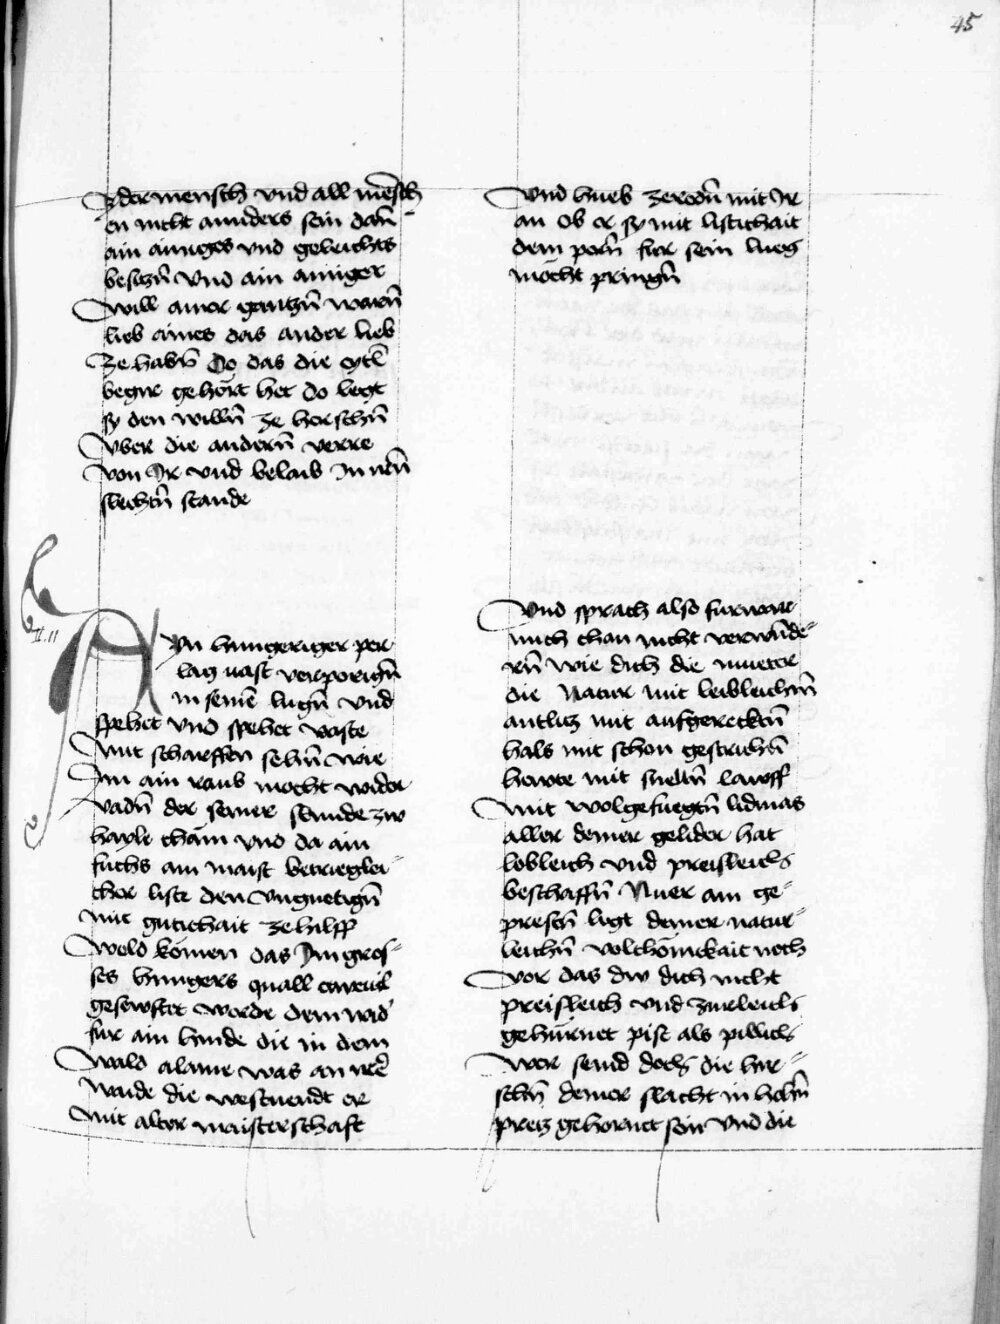 45
Yder mensch vnd all mensch
en nicht annders sein dan̄
ain ainiges vnd geleichts
besitzn̄ vnd ain ainiger
will ainer gantzn̄ warn̄
lieb aines das ander lieb
ze habn̄ Do das die eytl
begir gehört het do legt
sy den willn̄ ze herschn̄
vber die andern̄ verre
von Ir vnd belaib In irn̄
slechtn̄ stande
II. 11
AYn hungeriger per
lag vast verporign̄
in seinē lugn̄ vnd
spehet vnd spehet vaste
mit scharffen sehn̄ wie
Im ain raub mocht wider
vadn̄ der seiner stunde zw
hayle cham vnd da ain
fuchs am maist betrieglei-
cher liste den vnguetign̄
mit gutichait ze hilff
wold kömen das Im gros-
ses hungers quall ein weil
gesenftet worde dem wid
für ain hinde die in dem
wald alaine was an irer
waide die westuendt er
mit alter maisterschaft
vnd hueb ze redn̄ mit Ir
an ob er sy mit listichait
dem pern̄ für sein lueg
möcht pringn̄
Vnd sprach also fürwar
mich chan nicht verwunde-
rn̄ wie dich die mueter
die Natur mit leibleichem
antlitz mit aufgerecktn̄
hals mit schon gestrichn̄
harte mit snelln̄ lawff
mit wolgefuegtn̄ lidmas
aller deiner gelider hat
lobleich vnd preisleich
beschaffn̄ Nuer ain ge-
preschn̄ ligt deiner natur-
leichn̄ volchömickait noch
vor das dw dich nicht
preisleich vnd zierleich
gehürnet pist als pillich
wer seind doch die hir-
schn̄ deiner slacht in hohn̄
preis gehörnet sein vnd die